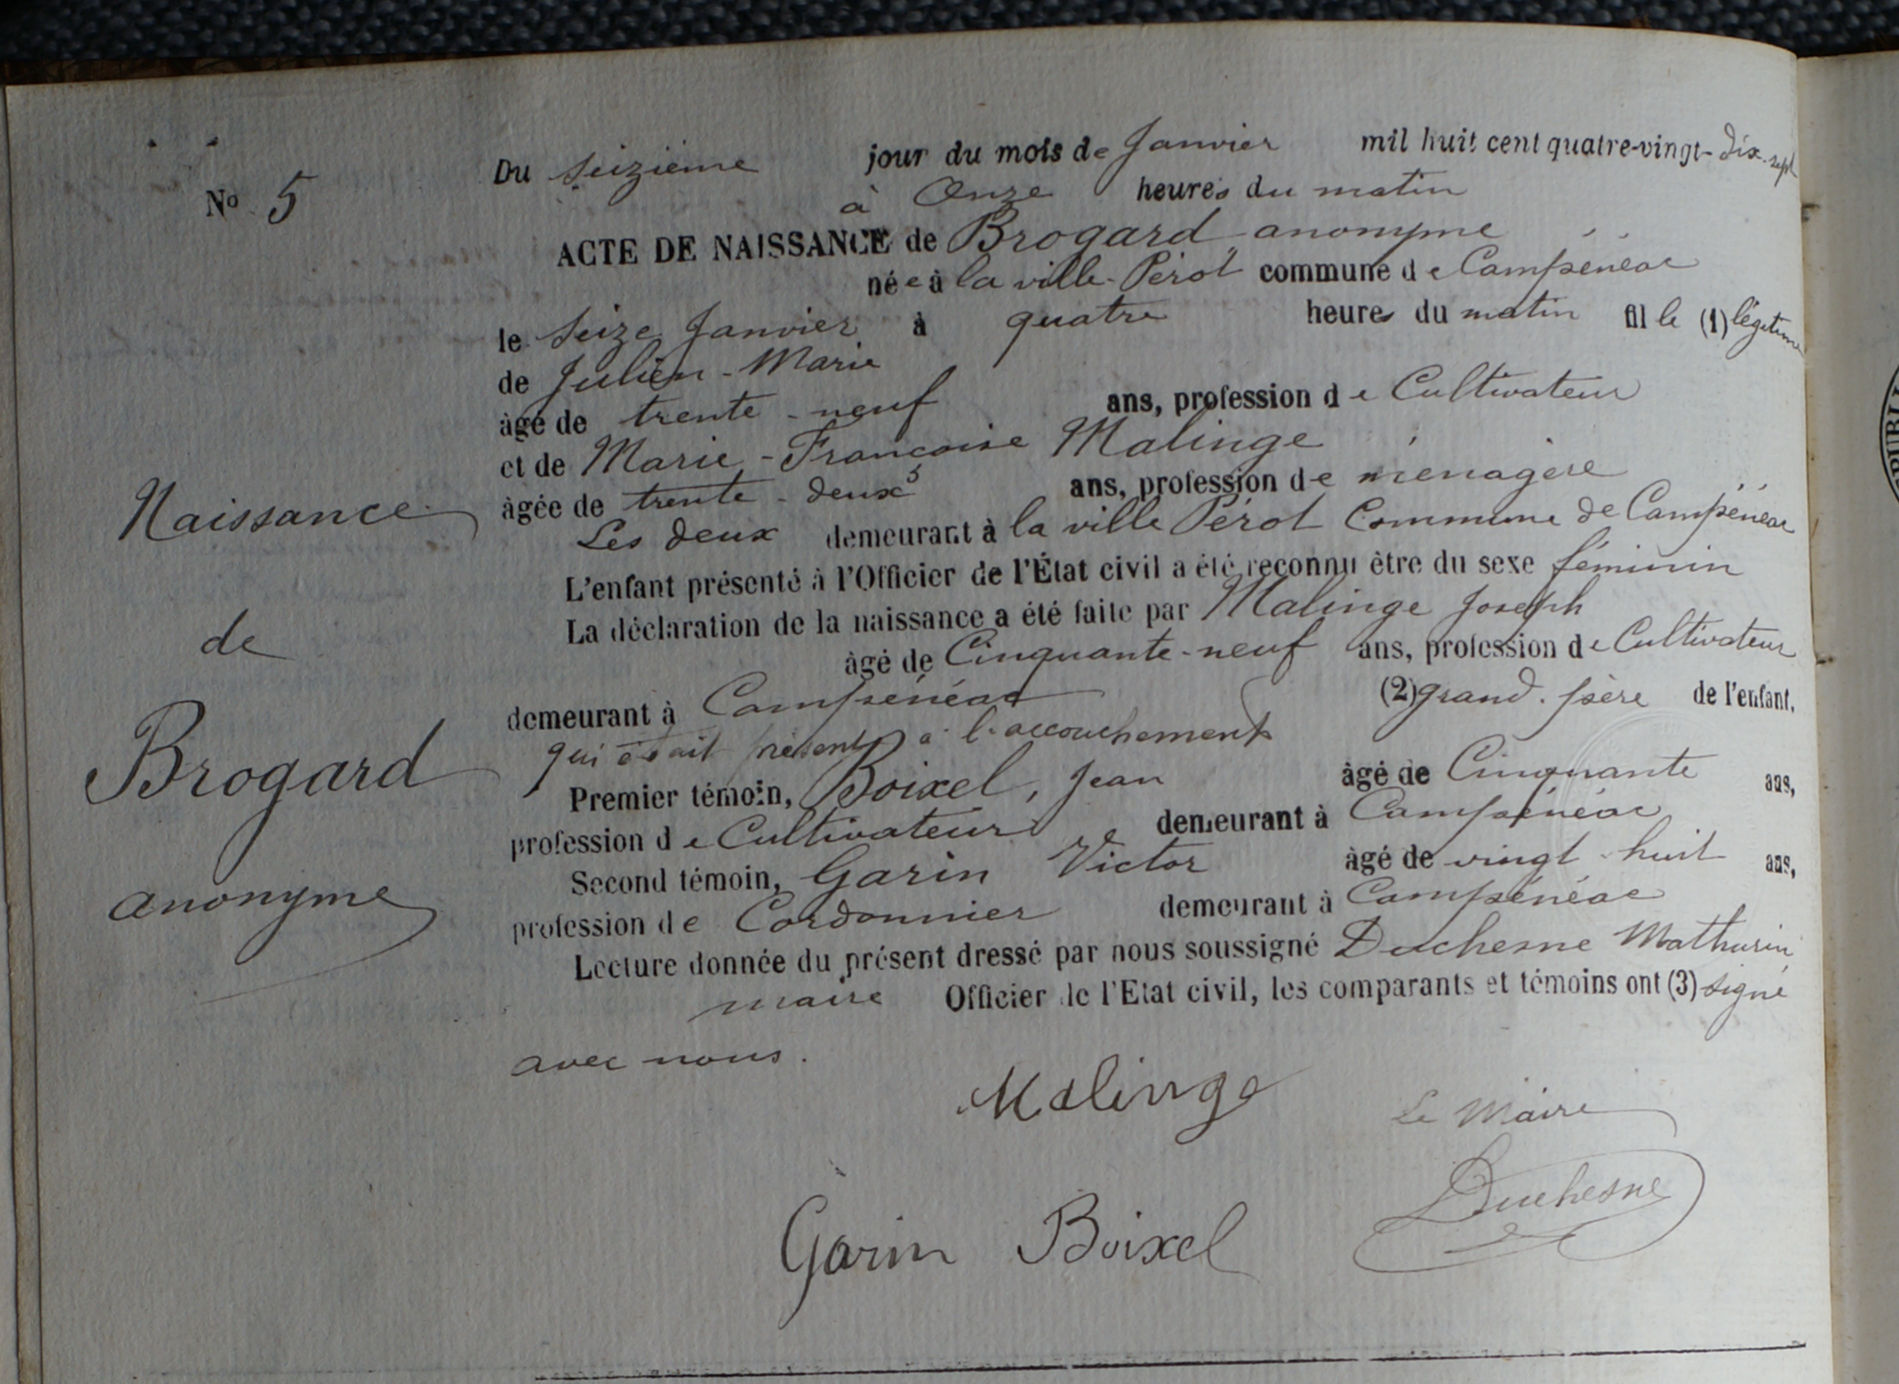 Du seizième jour du mois de Janvier mil huit cent quatre-vingt-dix-sept
No 5
à Onze heures du matin
ACTE DE NAISSANCE de Brogard anonyme
née à la ville Pérot commune de Campénéac
le Seize Janvier à quatre heures du matin fille (1) légitime
de Julien-Marie
âgé de trente-neuf ans, profession de Cultivateur
et de Marie-Françoise Malinge
âgée de trente-deux ans, profession de ménagère
Naissance
Les deux demeurant à la ville Pérot Commune de Campénéac
L'enfant présenté à l'Officier de l'État civil a été reconnu être du sexe féminin
La déclaration de la naissance a été faite par Malinge Joseph
de
âgé de Cinquante-neuf ans, profession de Cultivateur
demeurant à Campénéac (2) grand-père de l'enfant,
qui était présent à l'accouchement
Brogard
Premier témoin, Boixel, Jean âgé de Cinquante ans,
profession de Cultivateur demeurant à Campénéac
Second témoin, Garin Victor âgé de vingt-huit ans,
anonyme
profession de Cordonnier demeurant à Campénéac
Lecture donnée du présent dressé par nous soussigné Duchesne Mathurin
maire Officier de l'Etat civil, les comparants et témoins ont (3) signé
avec nous.
Malinge
Le Maire
Duchesne
Garin Boixel